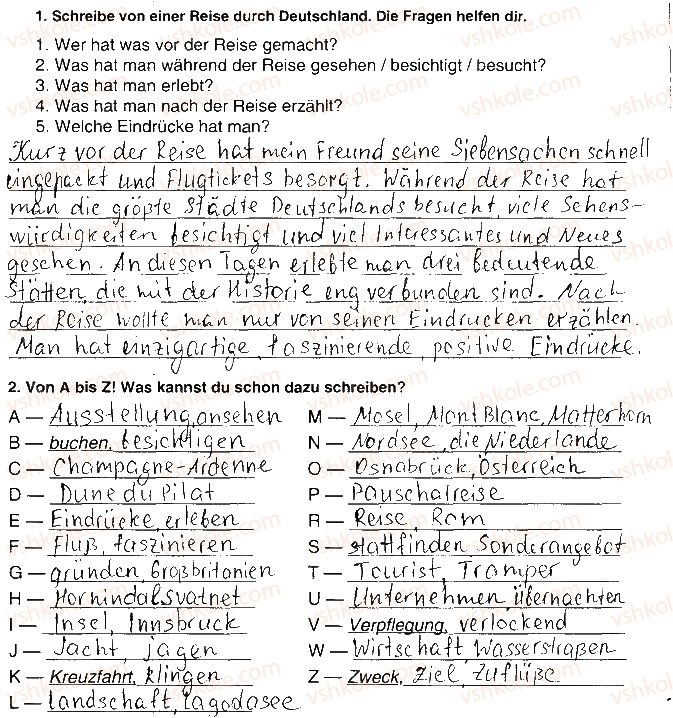 1. Schreibe von einer Reise durch Deutschland. Die Fragen helfen dir.
1. Wer hat was vor der Reise gemacht?
2. Was hat man während der Reise gesehen / besichtigt / besucht?
3. Was hat man erlebt?
4. Was hat man nach der Reise erzählt?
5. Welche Eindrücke hat man?
Kurz vor der Reise hat mein Freund seine Siebensachen schnell
eingepackt und Flugtickets besorgt. Während der Reise hat
man die größte Städte Deutschlands besucht, viele Sehens-
würdigkeiten besichtigt und viel Interessantes und Neues
gesehen. An diesen Tagen erlebte man drei bedeutende
Stätten, die mit der Historie eng verbunden sind. Nach
der Reise wollte man nur von seinen Eindrucken erzählen.
Man hat einzigartige, faszinierende, positive Eindrücke.
2. Von A bis Z! Was kannst du schon dazu schreiben?
A — Ausstellung, ansehen
B — buchen, besichtigen
C — Champagne-Ardenne
D — Dune du Pilat
E — Eindrücke, erleben
F — Fluß, faszinieren
G — gründen, Großbritanien
H — Hornindalsvatnet
I — Insel, Innsbruck
J — Jacht, jagen
K — Kreuzfahrt, klingen
L — Landschaft, Lagodasee
M — Mosel, Mont Blanc, Matterhorn
N — Nordsee, die Niederlande
O — Osnabrück, Österreich
P — Pauschalreise
R — Reise, Rom
S — stattfinden, Sonderangebot
T — Tourist, Tramper
U — Unternehmen, übernachten
V — Verpflegung, verlockend
W — Wirtschaft, Wasserstraßen
Z — Zweck, Ziel, Zuflüße
vshkole.com